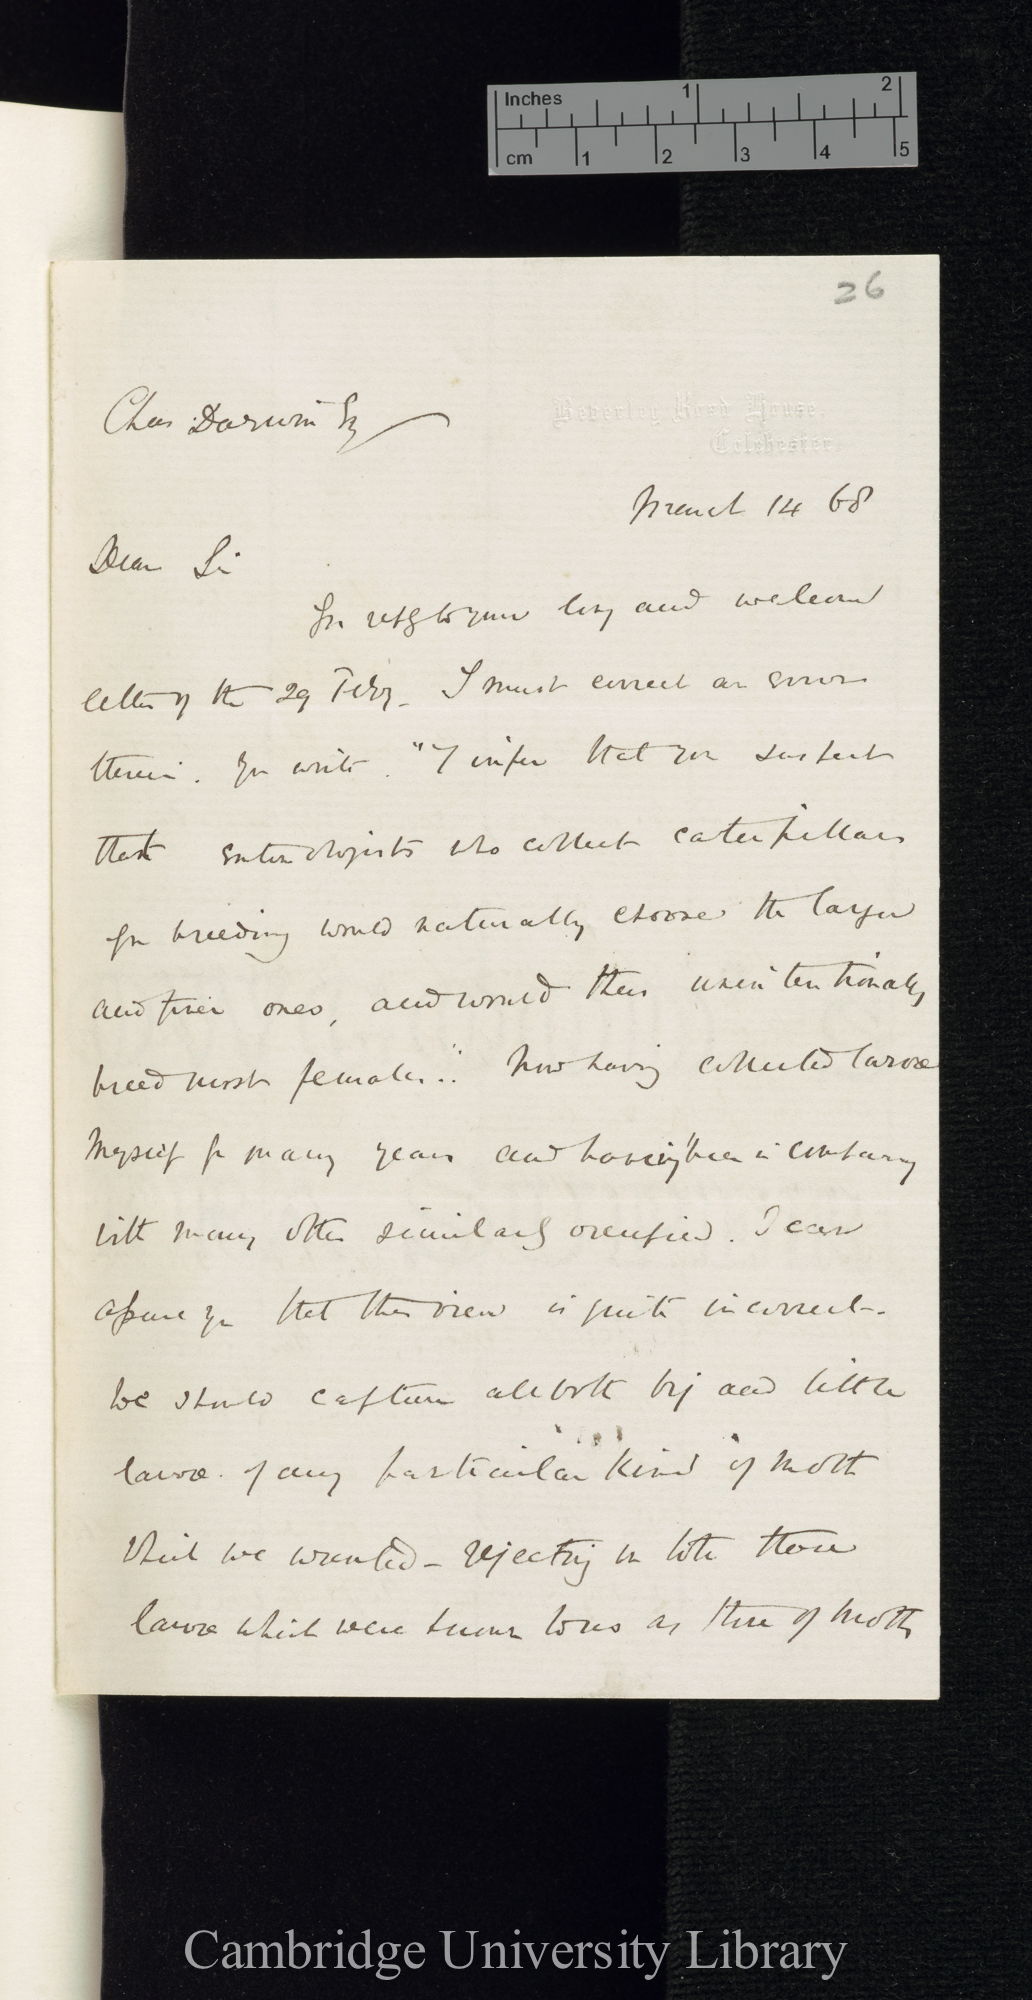 Inches 1 2
cm 1 2 3 4 5
26
Chas Darwin Esq
Beverley Road House.
Colchester.
March 14 68
Dear Sir
In reply to your long and welcome
letter of the 29 Feby. I must correct an error
therein. You write. "I infer that you suspect
that entomologists who collect caterpillars
for breeding would naturally choose the larger
and finer ones, and would thus unintentionally
breed most females." Now having collected larvæ
myself for many years and having been in company
with many others similarly occupied. I can
assure you that this view is quite incorrect.
We should capture all both big and little
larvæ of any particular kind of moth
which we wanted – rejecting in toto those
larvæ which were known to us as those of moths
Cambridge University Library